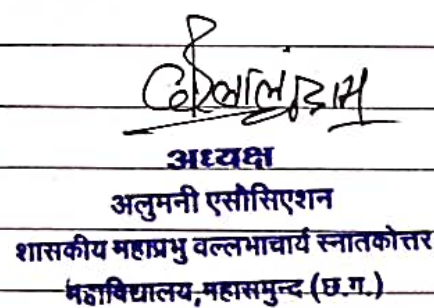 अध्यक्ष
अलुमनी एसोसिएशन
शासकीय महाप्रभु वल्लभाचार्य स्नातकोत्तर
महाविद्यालय,महासमुन्द (छ.ग.)